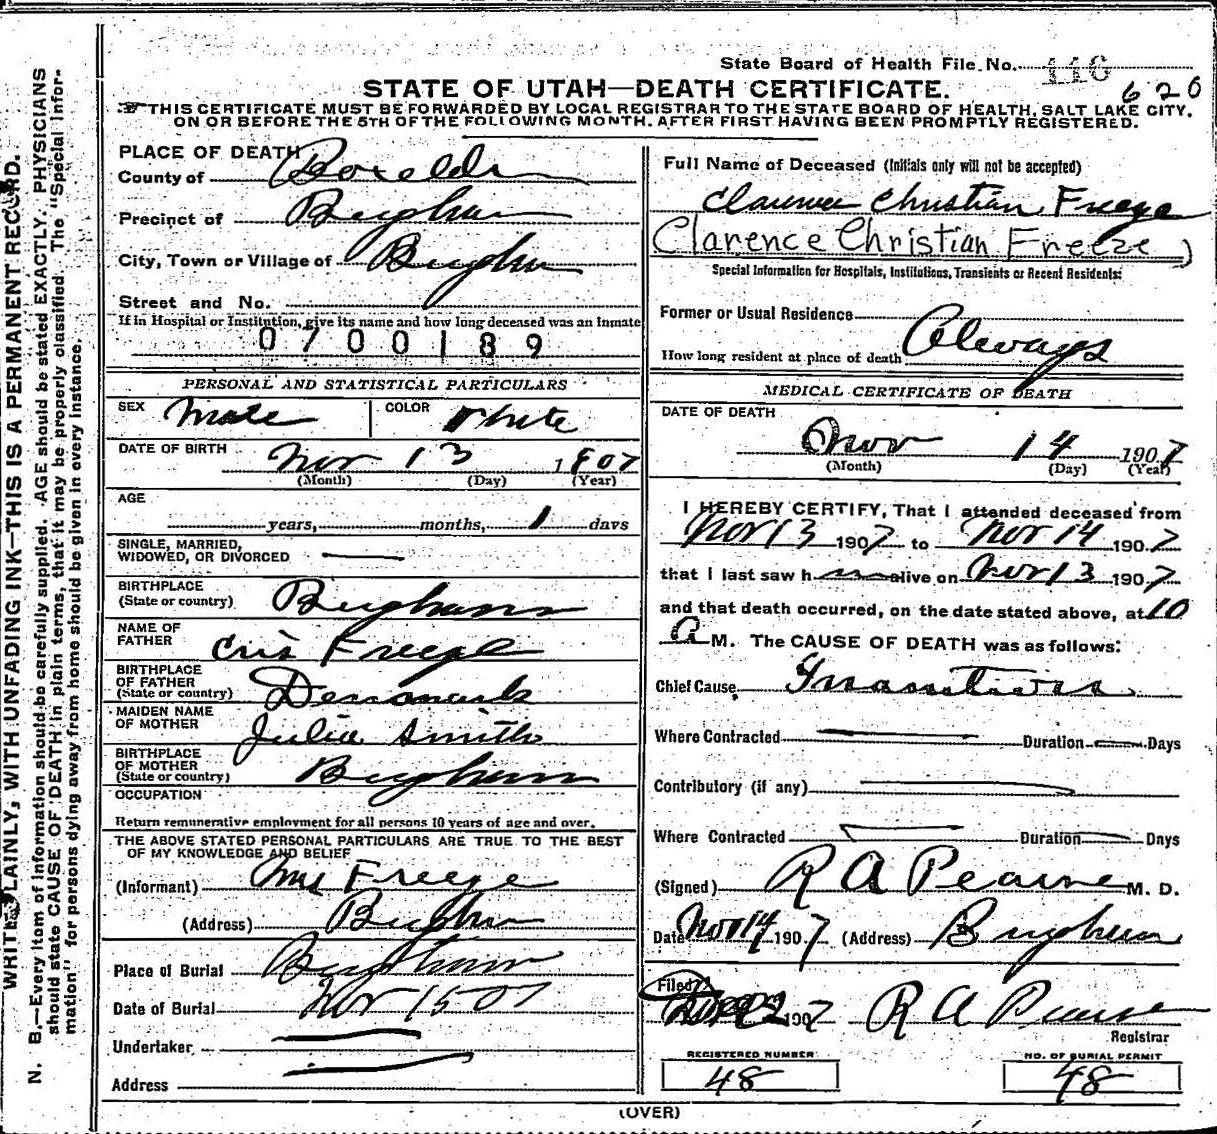 State Board of Health File No. 116
626
STATE OF UTAH—DEATH CERTIFICATE.
THIS CERTIFICATE MUST BE FORWARDED BY LOCAL REGISTRAR TO THE STATE BOARD OF HEALTH, SALT LAKE CITY,
ON OR BEFORE THE 5TH OF THE FOLLOWING MONTH, AFTER FIRST HAVING BEEN PROMPTLY REGISTERED.
WRITE PLAINLY, WITH UNFADING INK—THIS IS A PERMANENT RECORD.
N. B.—Every item of information should be carefully supplied. AGE should be stated EXACTLY. PHYSICIANS
should state CAUSE OF DEATH in plain terms, that it may be properly classified. The "Special Infor-
mation" for persons dying away from home should be given in every instance.
PLACE OF DEATH
County of Boxelder
Precinct of Brigham
City, Town or Village of Brigham
Street and No.
If in Hospital or Institution, give its name and how long deceased was an inmate
0700189
PERSONAL AND STATISTICAL PARTICULARS
SEX Male COLOR White
DATE OF BIRTH Nov 13 1907
(Month) (Day) (Year)
AGE
years, months, 1 days
SINGLE, MARRIED,
WIDOWED, OR DIVORCED
BIRTHPLACE
(State or country) Brigham
NAME OF
FATHER Cris Freeze
BIRTHPLACE
OF FATHER
(State or country) Denmark
MAIDEN NAME
OF MOTHER Julia Smith
BIRTHPLACE
OF MOTHER
(State or country) Brigham
OCCUPATION
Return remunerative employment for all persons 10 years of age and over.
THE ABOVE STATED PERSONAL PARTICULARS ARE TRUE TO THE BEST
OF MY KNOWLEDGE AND BELIEF
(Informant) Freeze
(Address) Brigham
Place of Burial Brigham
Date of Burial Nov 15 07
Undertaker
Address
Full Name of Deceased (Initials only will not be accepted)
Clarence Christian Freeze
(Clarence Christian Freeze)
Special Information for Hospitals, Institutions, Transients or Recent Residents:
Former or Usual Residence
How long resident at place of death Always
MEDICAL CERTIFICATE OF DEATH
DATE OF DEATH
Nov 14 1907
(Month) (Day) (Year)
I HEREBY CERTIFY, That I attended deceased from
Nov 13 1907 to Nov 14 1907
that I last saw h alive on Nov 13 1907
and that death occurred, on the date stated above, at 10
A M. The CAUSE OF DEATH was as follows:
Chief Cause, Inanition
Where Contracted Duration Days
Contributory (if any)
Where Contracted Duration Days
(Signed) R A Pearse M. D.
Date Nov 14 1907 (Address) Brigham
Filed
1907 R A Pearse
Registrar
REGISTERED NUMBER
48
NO. OF BURIAL PERMIT
48
(OVER)